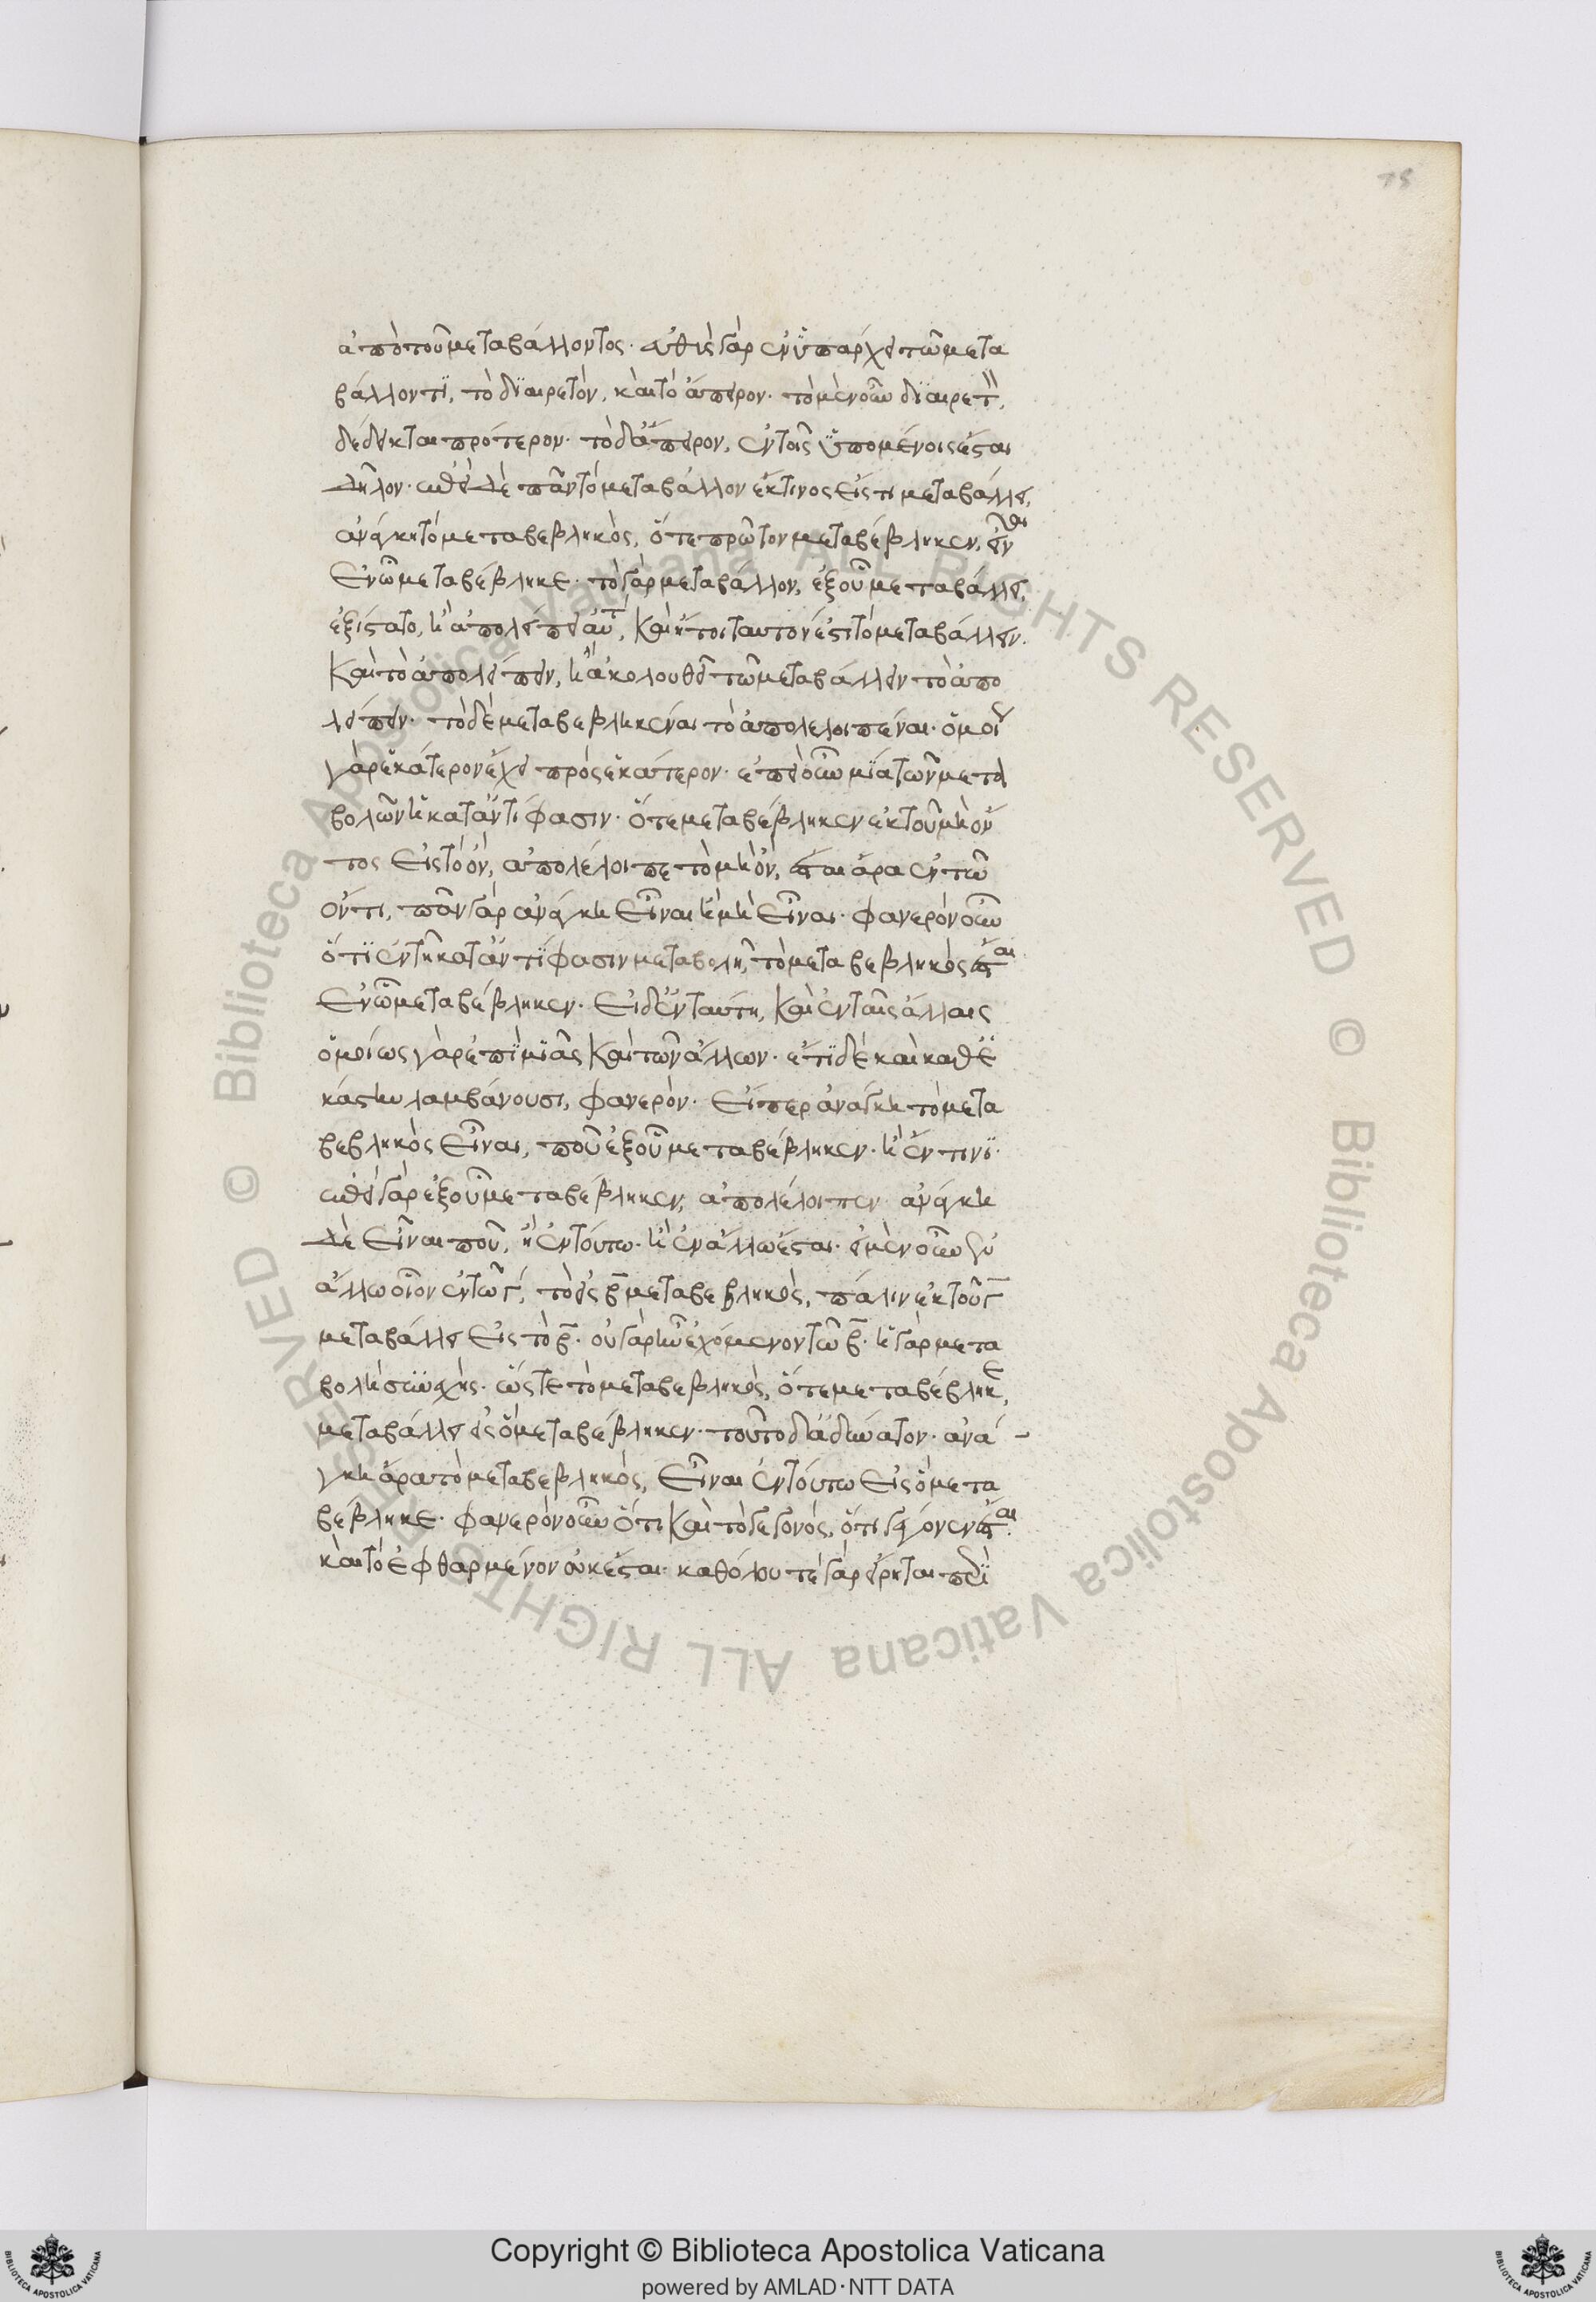 18
ἀπὸ τοῦ μεταβάλλοντος· εὐθὺς γὰρ ἐνϋπάρχει τῶ μετα
βάλλοντϊ, τὸ διαιρετὸν, καὶ τὸ ἄπειρον· τὸ μὲν οὖν διαιρετ,
δέδεικται πρότερον· τὸ δ' ἄπειρον, ἐν τοῖς ἑπομένοις ἔσται
δῆλον· ἐπεὶ δὲ πᾶν τὸ μεταβάλλον ἔκ τινος εἴς τι μεταβάλλει,
ἀνάγκη τὸ μεταβεβληκὸς, ὅτε πρῶτον μεταβέβληκεν, εἶναι
ἐν ὧ μεταβέβληκε· τὸ γὰρ μεταβάλλον, ἐξ οὗ μεταβάλλει,
ἐξίσταται, ἢ ἀπολείπει αὐτ, καὶ ἤτοι ταυτόν ἐστι τὸ μεταβάλλειν.
καὶ τὸ ἀπολείπειν, ἢ ἀκολουθεῖ τῶ μεταβάλλειν τὸ ἀπο
λείπειν· τὸ δὲ μεταβεβληκέναι τὸ ἀπολελοιπέναι· ὁμοί
γὰρ ἑκάτερον ἔχει πρὸς ἑκάτερον· ἐπεὶ οὖν μία τῶν μετα
βολῶν ἡ κατ' ἀντίφασιν· ὅτε μεταβέβληκεν ἐκ τοῦ μὴ ὄν
τος εἰς τὸ ὄν, ἀπολέλοιπε τὸ μὴ ὄν, ἔσται ἄρα ἐν τῶ
ὄντι, πᾶν γὰρ ἀνάγκη εἶναι ἢ μὴ εἶναι· φανερὸν οὖν
ὅτι ἐν τῆ κατ' ἀντίφασιν μεταβολῆ, τὸ μεταβεβληκὸς ἔσται
ἐν ὧ μεταβέβληκεν· εἰ δ' ἐν ταύτη, καὶ ἐν ταῖς ἄλλαις
ὁμοίως γὰρ ἐπὶ μιᾶς καὶ τῶν ἄλλων· ἔτι δὲ καὶ καθ' ἑ
κάστην λαμβάνουσι, φανερὸν· εἴπερ ἀνάγκη τὸ μετα
βεβληκὸς εἶναι, που ἐξ οὗ μεταβέβληκεν· ἢ ἔν τινι·
ἐπεὶ γὰρ ἐξ οὗ μεταβέβληκεν, ἀπολέλοιπεν ἀνάγκη
δὲ εἶναι που, ἢ ἐν τούτω· ἢ ἐν ἄλλω ἔσται· εἰ μὲν οὖν ἐν
ἄλλω οἷον ἐν τῶ Γ, τὸ εἰς Β μεταβεβληκὸς, πάλιν ἐκ τοῦ Γ
μεταβάλλει εἰς τὸ Β· οὐ γὰρ ἦν ἐχόμενον τῶ Β· ἡ γὰρ μετα
βολὴ συνεχής· ὥστε τὸ μεταβεβληκὸς, ὅτε μεταβέβληκε,
μεταβάλλει εἰς ὃ μεταβέβληκεν· τοῦτο δ' ἀδύνατον· ἀνά-
γκη ἄρα τὸ μεταβεβληκὸς, εἶναι ἐν τούτω εἰς ὃ μετα
βέβληκε· φανερὸν οὖν ὅτι καὶ τὸ γεγονὸς, ὅτι γέγονεν ἔσται·
καὶ τὸ ἐφθαρμένον οὐκ ἔσται· καθόλου τε γὰρ εἴρηται περὶ
Copyright © Biblioteca Apostolica Vaticana
powered by AMLAD·NTT DATA